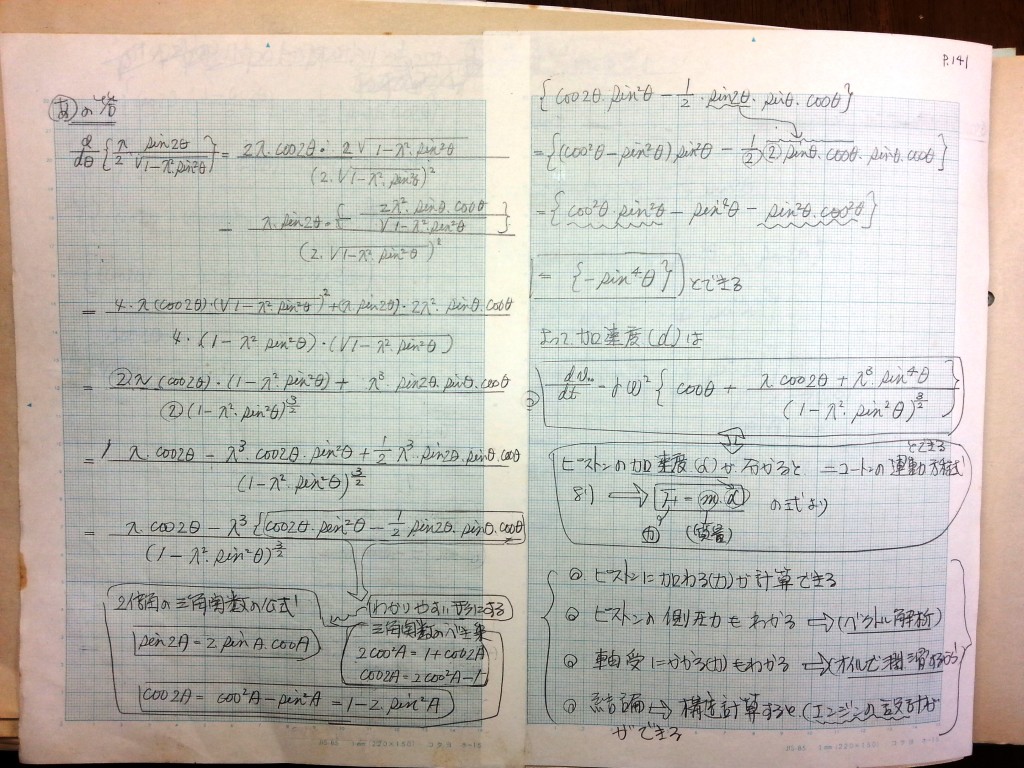 P.141
d/dθ {λ/2 · sin2θ/√(1-λ²·sin²θ)} = 2λ·cos2θ·2√(1-λ²·sin²θ) / (2·√(1-λ²·sin²θ))²
- λ·sin2θ·{- 2λ²·sinθ·cosθ/√(1-λ²·sin²θ)} / (2·√(1-λ²·sin²θ))²
= 4·λ(cos2θ)·(√(1-λ²·sin²θ))²+(λ·sin2θ)·2λ²·sinθ·cosθ / 4·(1-λ²·sin²θ)·(√(1-λ²·sin²θ))
= ②λ(cos2θ)·(1-λ²·sin²θ) + λ³·sin2θ·sinθ·cosθ / ②(1-λ²·sin²θ)^(3/2)
= λ·cos2θ - λ³·cos2θ·sin²θ + 1/2 λ³·sin2θ·sinθ·cosθ / (1-λ²·sin²θ)^(3/2)
= λ·cos2θ - λ³{cos2θ·sin²θ - 1/2 sin2θ·sinθ·cosθ / (1-λ²·sin²θ)^(3/2)
わかりやすい形にする
2倍角の三角関数の公式
sin2A = 2·sinA·cosA
cos2A = cos²A - sin²A = 1-2·sin²A
三角関数の
2cos²A = 1+cos2A
cos2A = 2cos²A-1
{cos2θ·sin²θ - 1/2·sin2θ·sinθ·cosθ}
= {(cos²θ-sin²θ)sin²θ - 1/②·②sinθ·cosθ·sinθ·cosθ}
= {cos²θ·sin²θ - sin⁴θ - sin²θ·cos²θ}
= {-sin⁴θ} とできる
よって加速度(α)は
= rω² { cosθ + λcos2θ+λ³·sin⁴θ / (1-λ²·sin²θ)^(3/2) }
とできる
ピストンの加速度(α)が分かると ニュートンの運動方程式
より ⇒ F = m·α の式より
(力) (質量)
◎ ピストンに加わる(力)が計算できる
◎ ピストンの側圧力もわかる ⇒ (ベクトル解析)
◎ 軸受にかかる(力)もわかる ⇒ (オイルで潤滑する)
◎ 結論 ⇒ 構造計算すると (エンジンの設計が
ができる
JIS-B5 1mm (220×150) コクヨ ホ-15
JIS-B5 1mm (220×150) コクヨ ホ-15